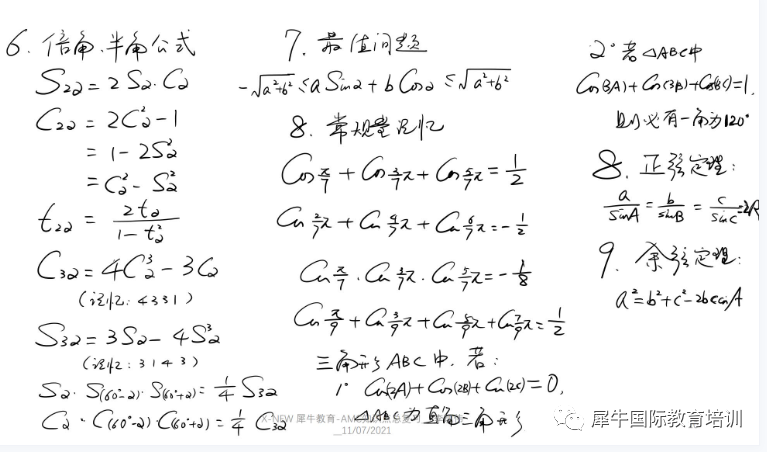 6. 倍角、半角公式
S2α = 2Sα·Cα
C2α = 2Cα² - 1
= 1 - 2Sα²
= Cα² - Sα²
t2α = 2tα / (1 - tα²)
C3α = 4Cα³ - 3Cα
(记忆: 4331)
S3α = 3Sα - 4Sα³
(记忆: 3143)
Sα·S(60°-α)·S(60°+α) = 1/4 S3α
Cα·C(60°-α)·C(60°+α) = 1/4 C3α
7. 最值问题
-√a²+b² ≤ a Sinα + b Cosα ≤ √a²+b²
8. 常规量记忆
Cos π/7 + Cos 3/7π + Cos 5/7π = 1/2
Cos 2/7π + Cos 4/7π + Cos 6/7π = -1/2
Cos π/7 · Cos 3/7π · Cos 5/7π = -1/8
Cos π/9 + Cos 3/9π + Cos 5/9π + Cos 7/9π = 1/2
三角形ABC中, 若:
1° Cos(2A) + Cos(2B) + Cos(2C) = 0,
△ABC为直角三角形
2° 若△ABC中
Cos(3A) + Cos(3B) + Cos(3C) = 1,
则必有一角为120°
8. 正弦定理:
a/sinA = b/sinB = c/sinC = 2R
9. 余弦定理:
a² = b² + c² - 2bccosA
X-NEW 犀牛教育-AM
11/07/2021
犀牛国际教育培训